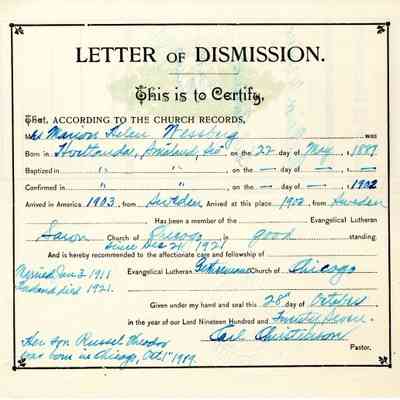 LETTER OF DISMISSION.
This is to Certify,
That, ACCORDING TO THE CHURCH RECORDS,
M Marion Helen Wessberg was
Born in Småland, on the 22 day of May, 1887
Baptized in " " , on the — day of — , 1
Confirmed in " " , on the — day of — , 1902
Arrived in America 1903, from Sweden Arrived at this place 1903, from Sweden
Has been a member of the Evangelical Lutheran
Saron Church of Chicago in good standing.
since Dec 21 1921
And is hereby recommended to the affectionate care and fellowship of
Married Jan 3 1911 Evangelical Lutheran Gethsemane Church of Chicago
Husband died 1921.
Given under my hand and seal this 28 day of October
in the year of our Lord Nineteen Hundred and Twenty Seven.
Her son Russel Theodor Carl Christenson
was born in Chicago, Oct 1st 1919. Pastor.